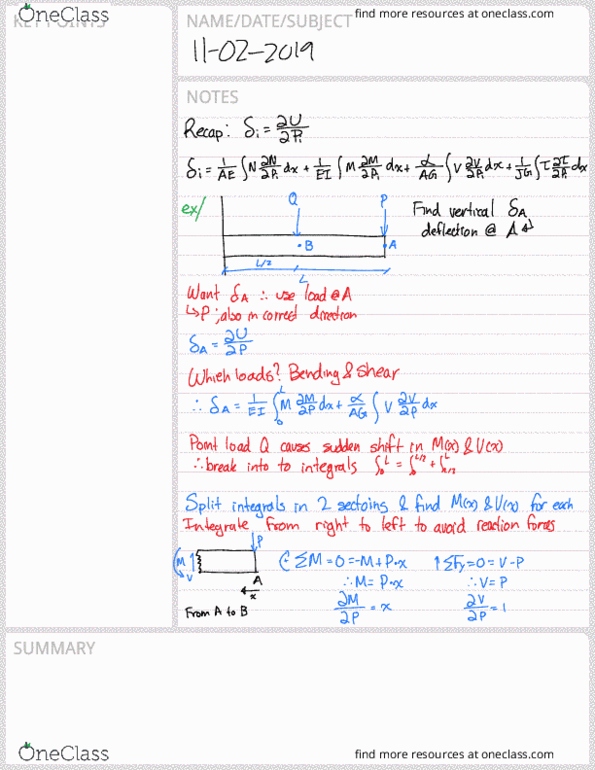 OneClass
KEY POINTS
NAME/DATE/SUBJECT
find more resources at oneclass.com
11-02-2019
NOTES
Recap: δi = ∂U/∂Pi
δi = 1/AE ∫N ∂N/∂Pi dx + 1/EI ∫M ∂M/∂Pi dx + α/AG ∫V ∂V/∂Pi dx + 1/JG ∫T ∂T/∂Pi dx
ex/
Q
P
Find vertical δA
deflection @ A
B
A
L/2
L
Want δA ∴ use load @ A
↳ P ; also in correct direction
δA = ∂U/∂P
Which loads? Bending & shear
∴ δA = 1/EI ∫₀ᴸ M ∂M/∂P dx + α/AG ∫ V ∂V/∂P dx
Point load Q causes sudden shift in M(x) & V(x)
∴ break into to integrals ∫₀ᴸ = ∫₀ᴸᐟ² + ∫ᴸ L/2
Split integrals in 2 sectoing & find M(x) & V(x) for each
Integrate from right to left to avoid reaction forces
P
M
V
A
x
From A to B
ΣM = 0 = -M + P·x
∴ M = P·x
∂M/∂P = x
↑ΣFy = 0 = V - P
∴ V = P
∂V/∂P = 1
SUMMARY
OneClass
find more resources at oneclass.com